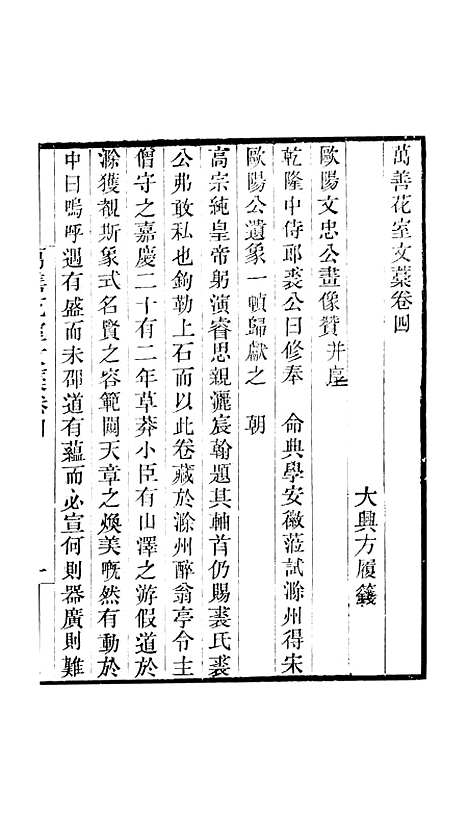 萬善花室文藁卷四
大興方履籛
歐陽文忠公畫像贊并序
乾隆中侍郎裘公曰修奉　命典學安徽蒞試滁州得宋
歐陽公遺象一幀歸獻之　朝
高宗純皇帝躬演睿思親灑宸翰題其軸首仍賜裘氏裘
公弗敢私也鉤勒上石而以此卷藏於滁州醉翁亭令主
僧守之嘉慶二十有二年草莽小臣有山澤之游假道於
滁獲覩斯象式名賢之容範闚天章之煥美嘅然有動於
中曰嗚呼遇有盛而未邵道有蘊而必宣何則器廣則難
萬善花室文藁卷四
一